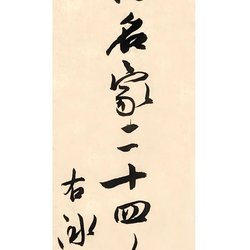 名家二十四
右